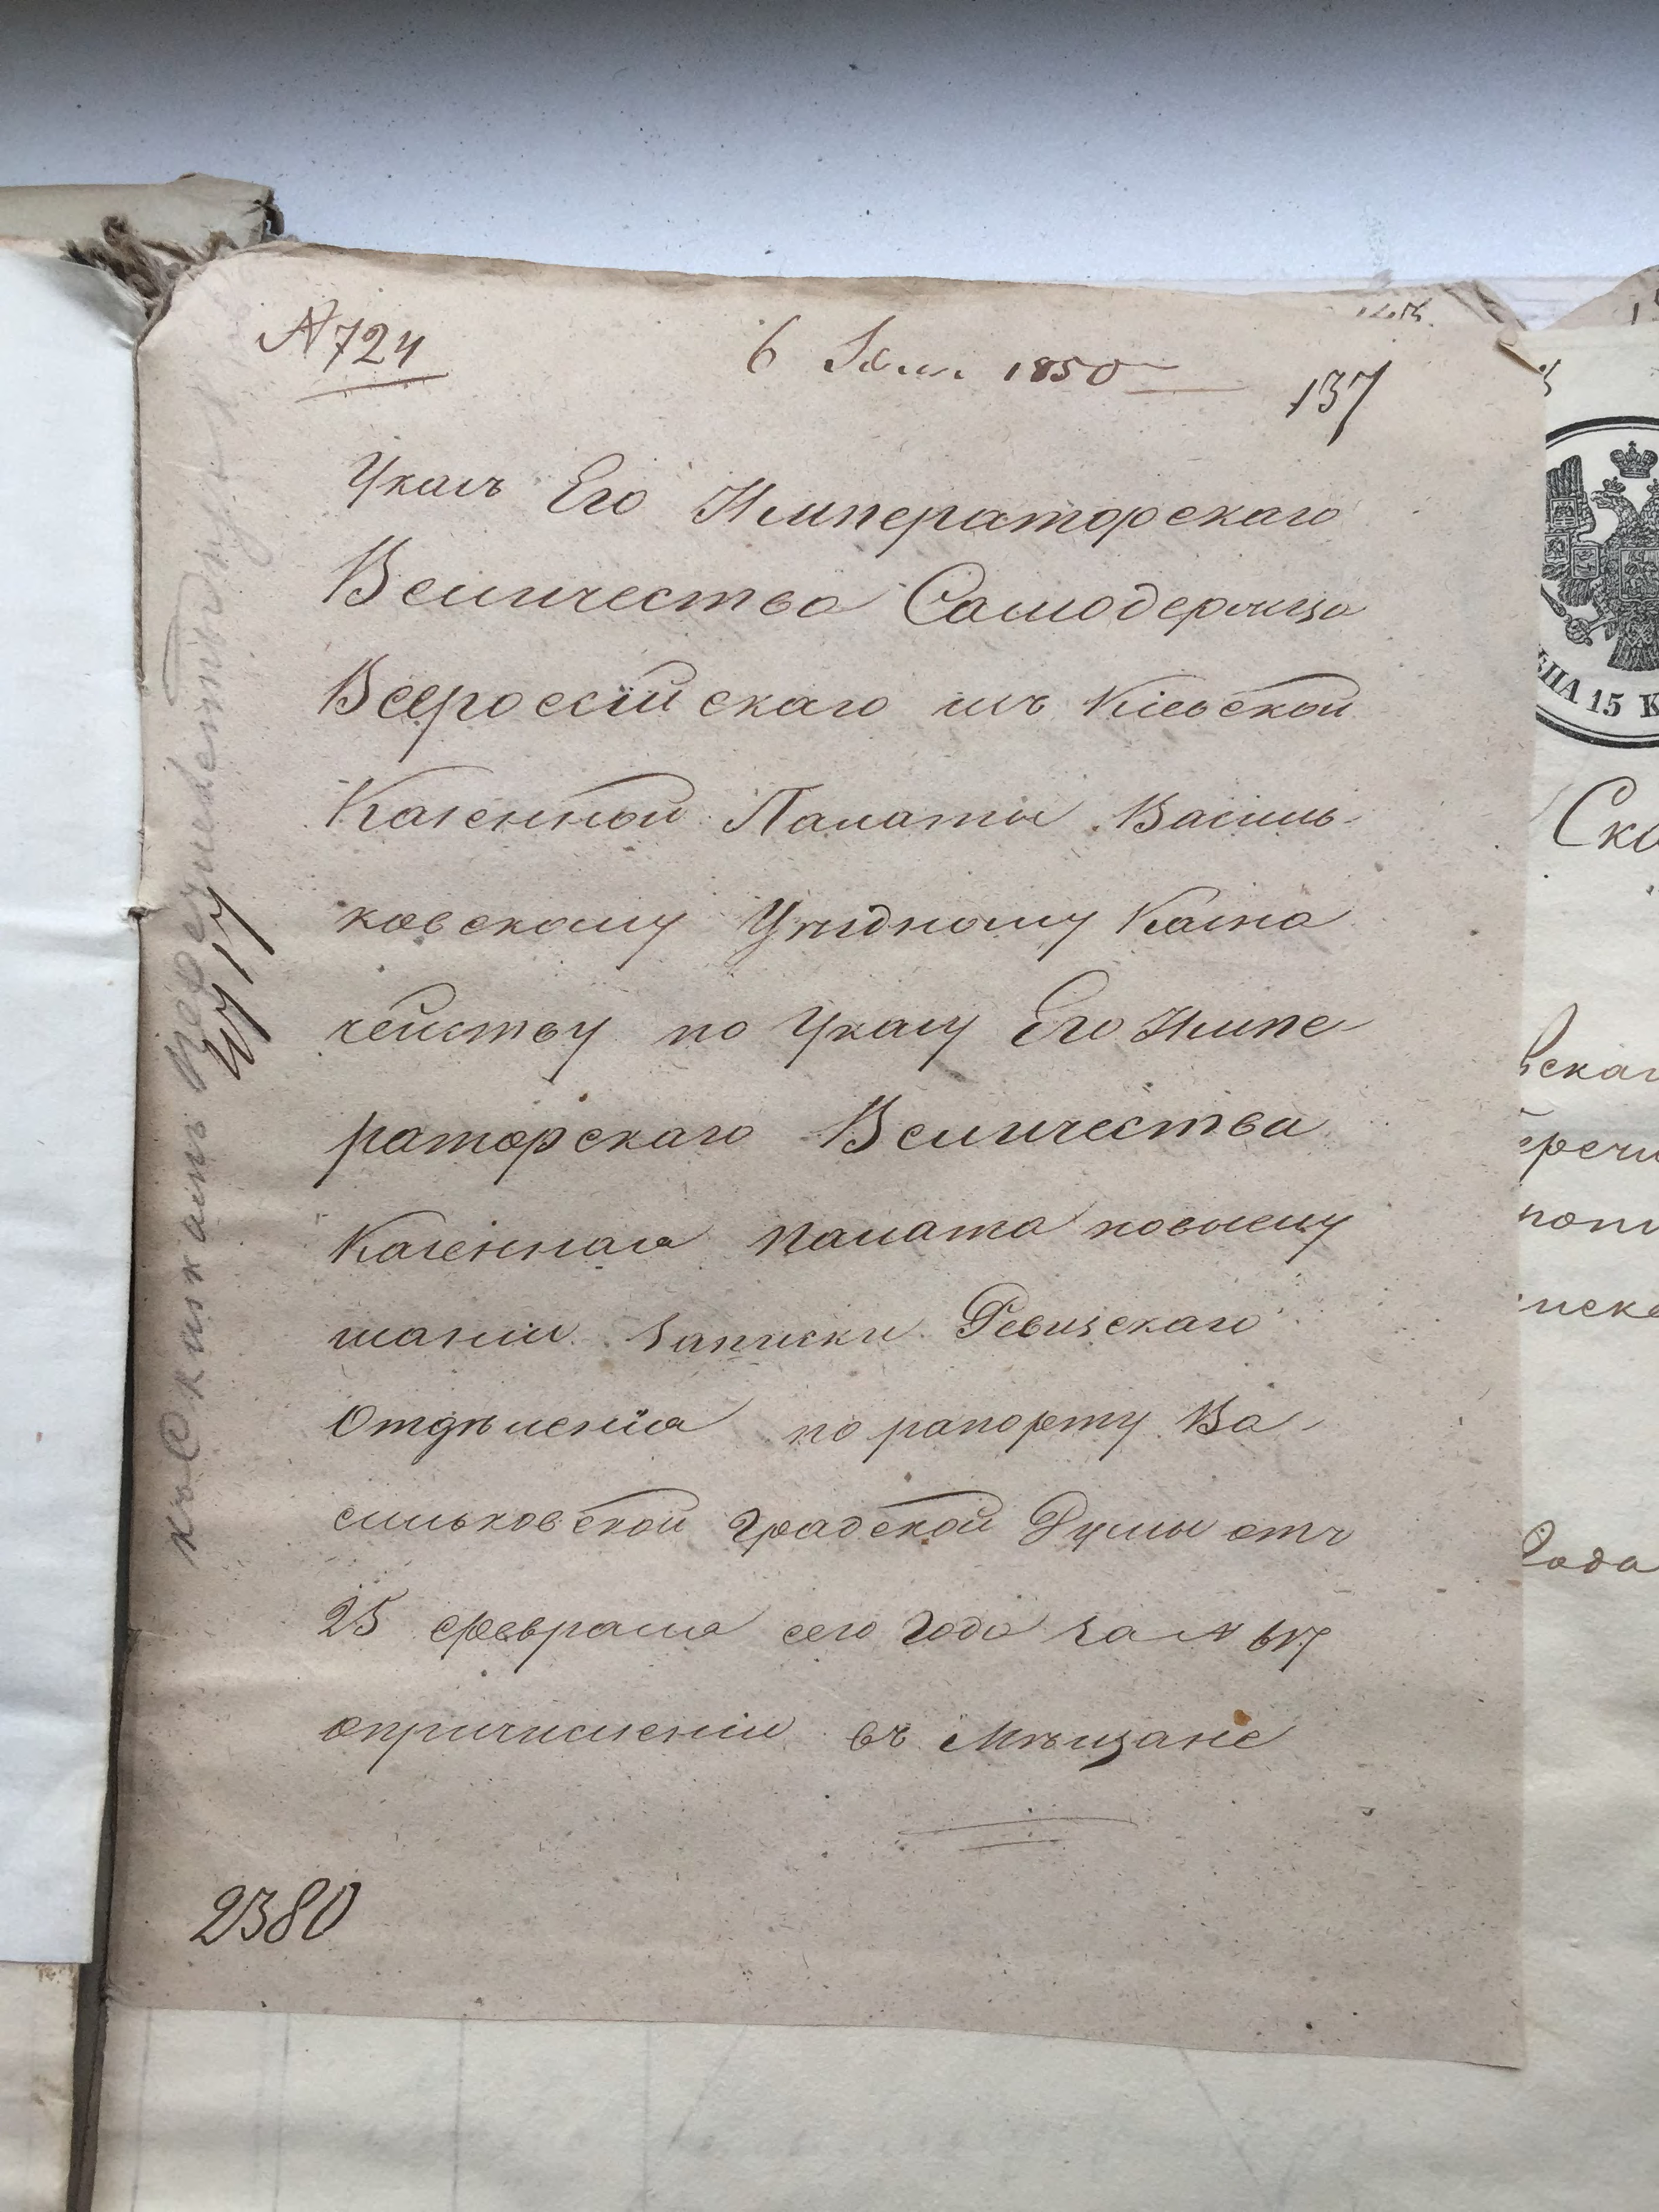 № 724
6 Іюн. 1850
137
Указъ Его Императорскаго
Величества Самодержца
Всероссійскаго изъ Кіевской
Казенной Палаты Василь-
ковскому Уѣздному Казна
чейству по Указу Его Импе-
раторскаго Величества
Казенная палата повыслу
шаніи записки Ревизскаго
Отдѣленія по рапорту Ва-
сильковской Градской Думы отъ
25 февраля сего Года за №
опричисленіи въ Мѣщане
къ Сказкамъ
2380
ЦѢНА 15 К
Ска
вскаг
еречи
Года